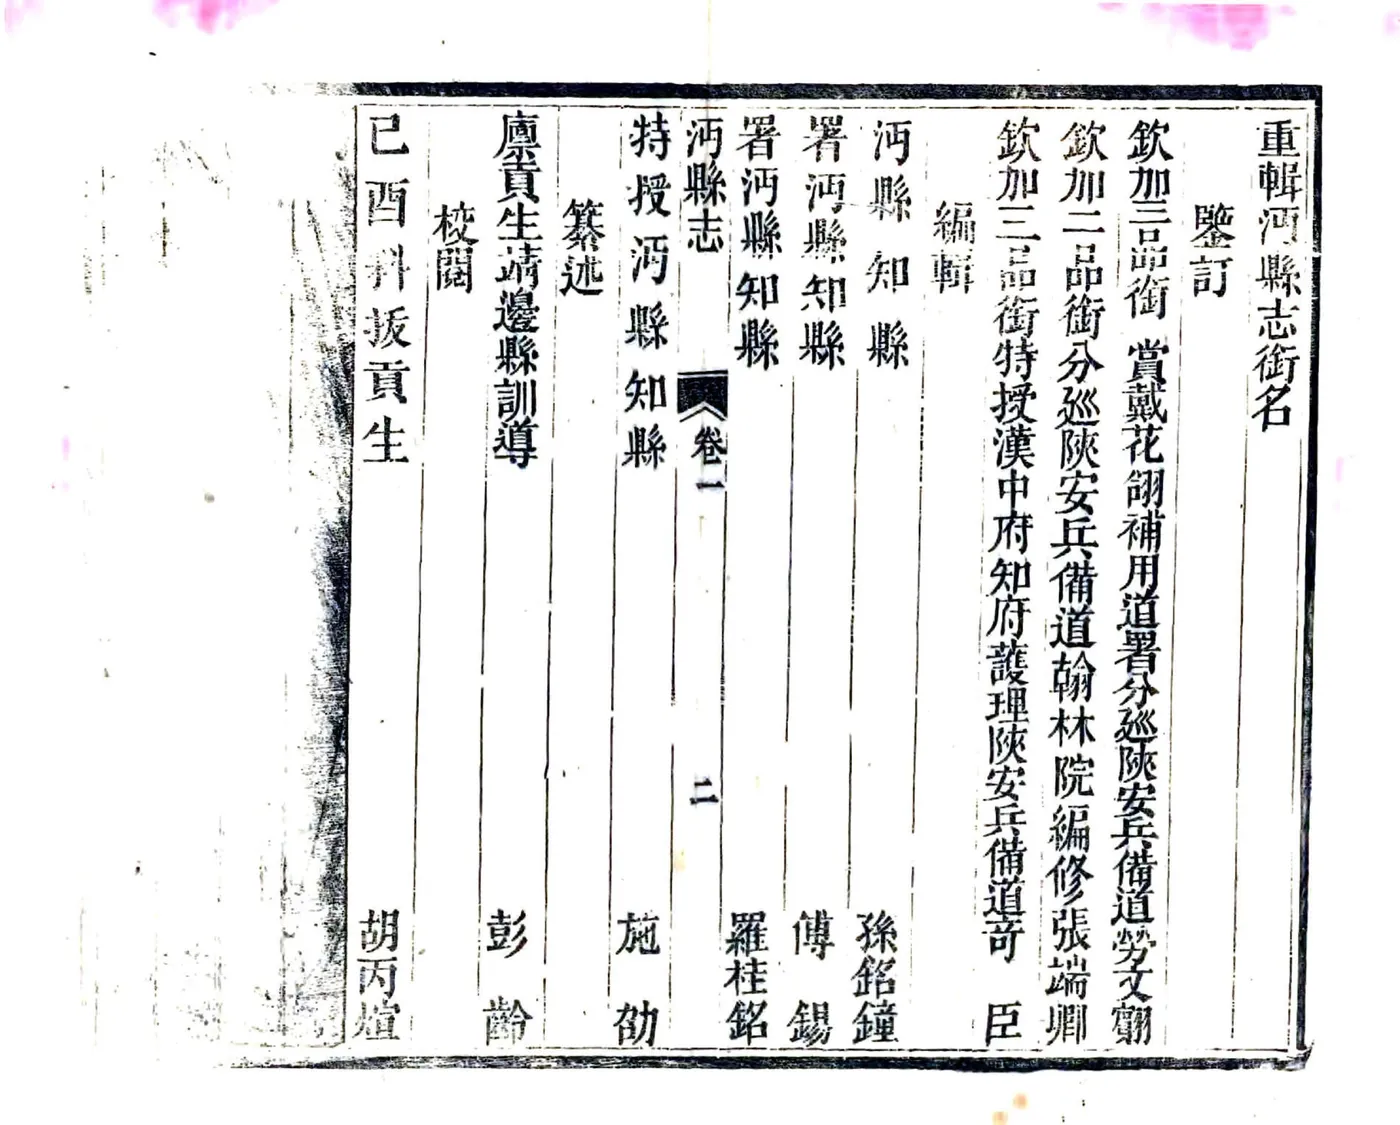 重輯沔縣志銜名
鑒訂
欽加三品銜 賞戴花翎補用道署分巡陝安兵備道勞文翽
欽加二品銜分巡陝安兵備道翰林院編修張端卿
欽加三品銜特授漢中府知府護理陝安兵備道奇 臣
編輯
沔縣知縣 孫銘鐘
署沔縣知縣 傅 錫
署沔縣知縣 羅桂銘
沔縣志 卷一 二
特授沔縣知縣 施 劭
纂述
廪貢生靖邊縣訓導 彭 齡
校閱
己酉科拔貢生 胡丙煊